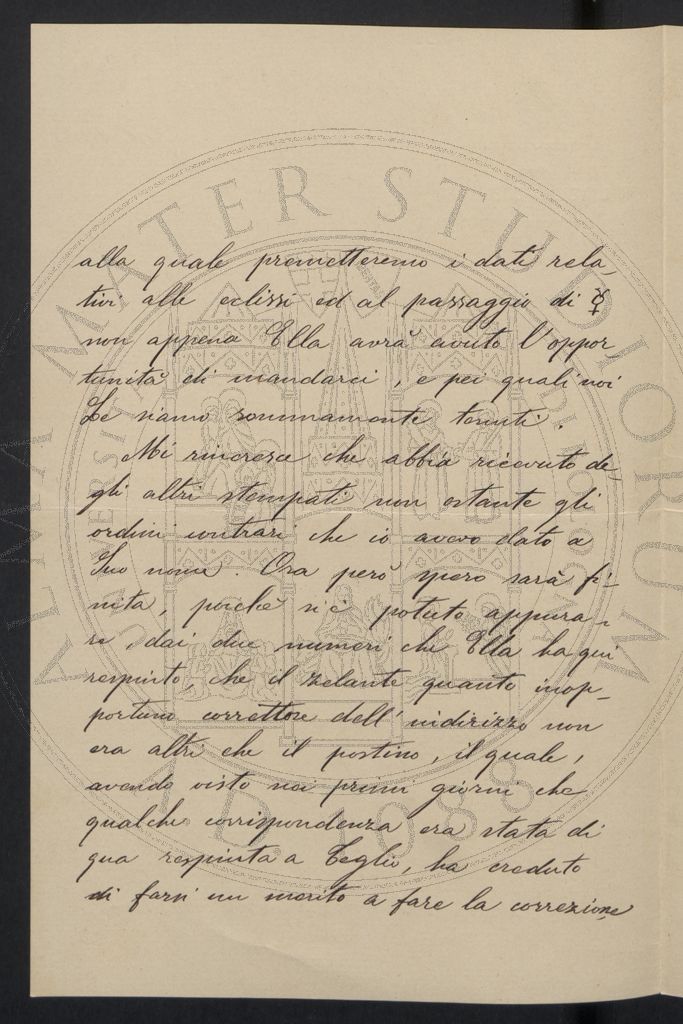 alla quale premetteremo i dati rela-
tivi alle eclissi ed al passaggio di ☿
non appena Ella avrà avuto l'oppor-
tunità di mandarci, e pei quali noi
Le siamo sommamente tenuti.
Mi rincresce che abbia ricevuto de-
gli altri stampati non ostante gli
ordini contrari che io avevo dato a
Suo nome. Ora però spero sarà fi-
nita, poichè s'è potuto appura-
re, dai due numeri che Ella ha qui
respinto, che il zelante quanto inop-
portuno correttore dell'indirizzo non
era altri che il postino, il quale,
avendo visto nei primi giorni che
qualche corrispondenza era stata di
qua respinta a Teglio, ha creduto
di farsi un merito a fare la correzione
ALMA MATER STUDIORUM
A.D. 1088